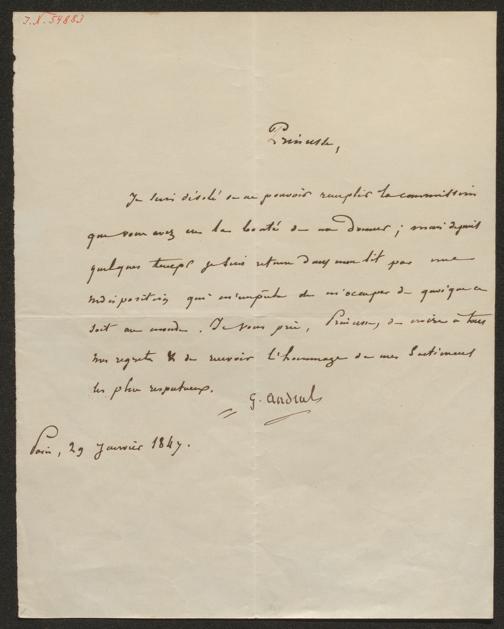 J.N. 54883
Princesse,
Je suis désolé de ne pouvoir remplir la commission
que vous avez eu la bonté de me donner ; mais depuis
quelques temps je suis retenu dans mon lit par une
indisposition qui m'empêche de m'occuper de quoi que ce
soit au monde. Je vous prie, Princesse, de croire à tous
mes regrets & de recevoir l'hommage de mes sentiments
les plus respectueux.
G. Andral
Paris, 29 Janvier 1847.